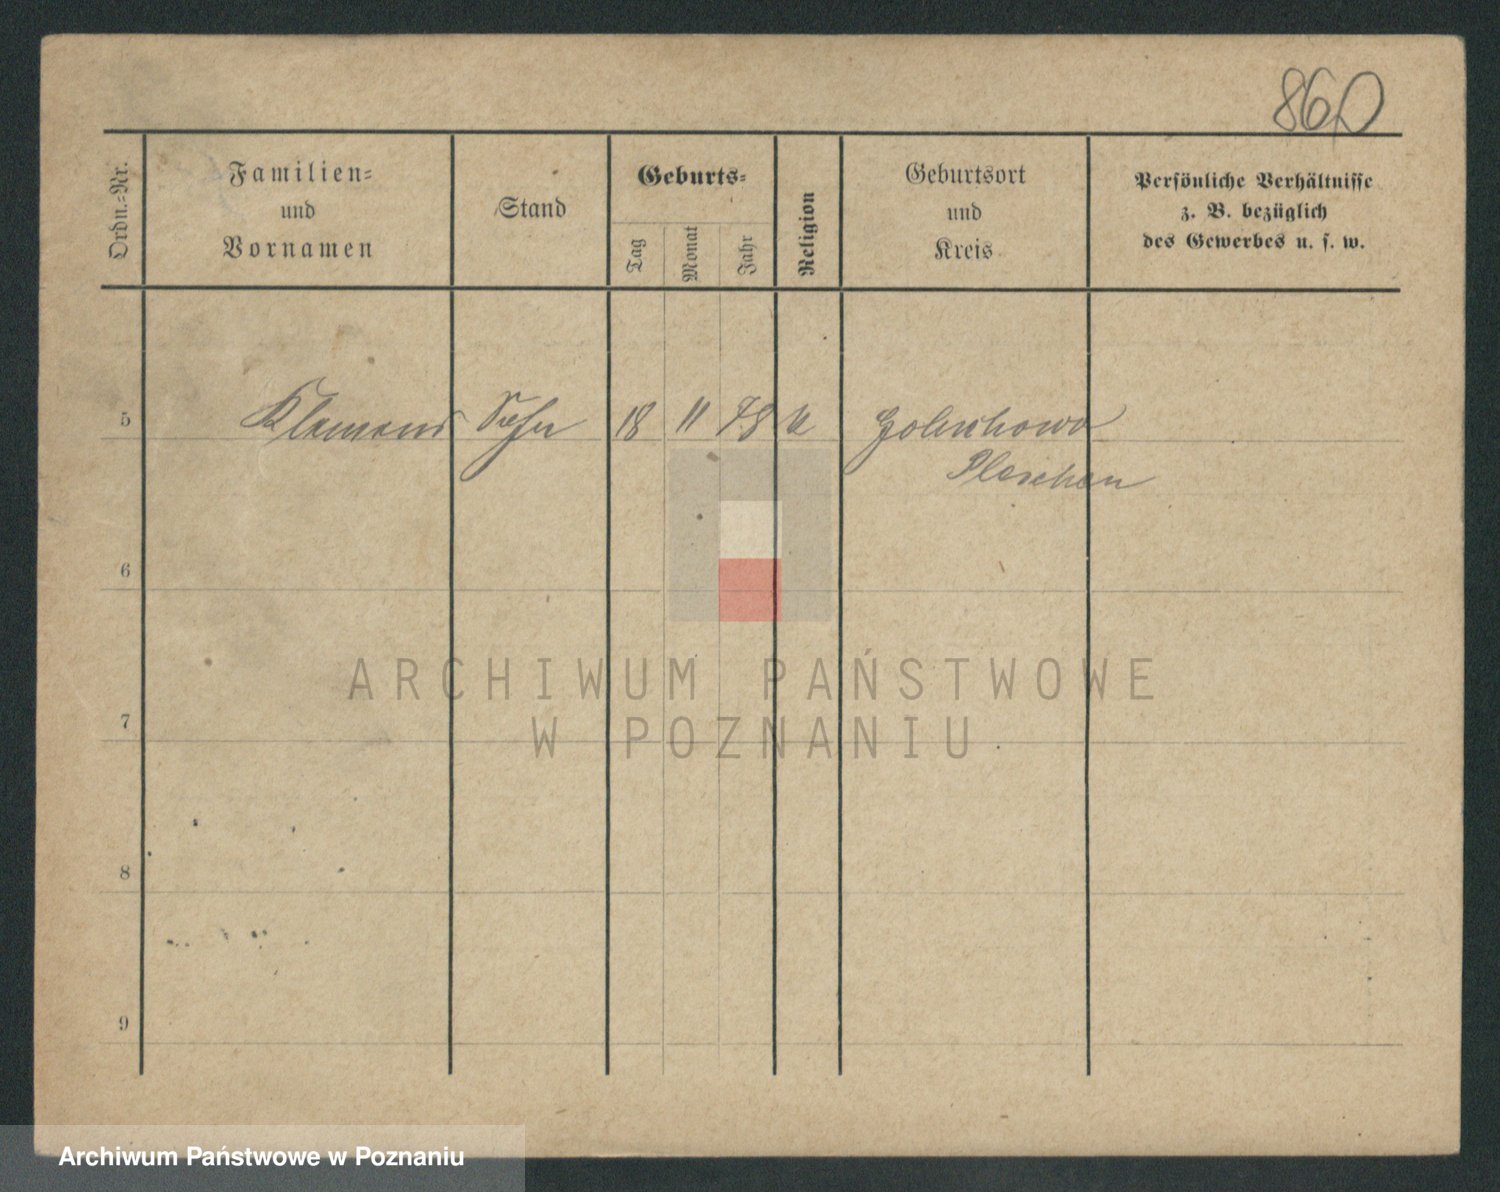 860
Ordn.-Nr.
Familien-
und
Vornamen
Stand
Geburts-
Tag
Monat
Jahr
Religion
Geburtsort
und
Kreis
Persönliche Verhältnisse
z. B. bezüglich
des Gewerbes u. s. w.
5 Klemens Sohn 18 11 78 k Goluchowo
Pleschen
6
ARCHIWUM PAŃSTWOWE
W POZNANIU
7
8
9
Archiwum Państwowe w Poznaniu